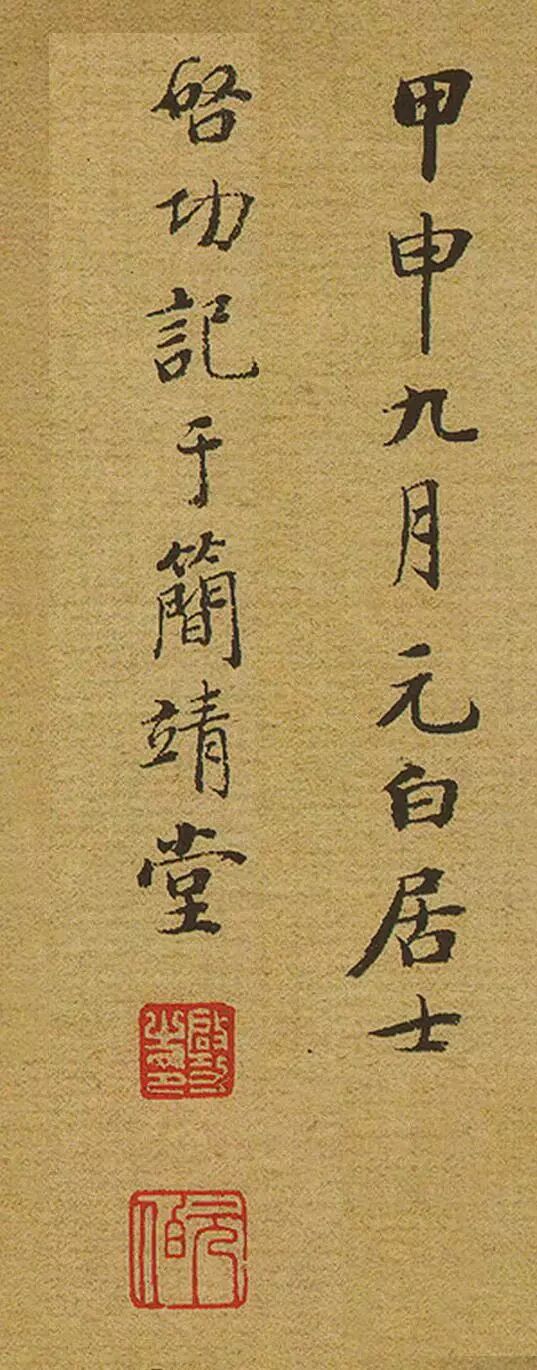 甲申九月元白居士
啓功記于簡靖堂
元伯